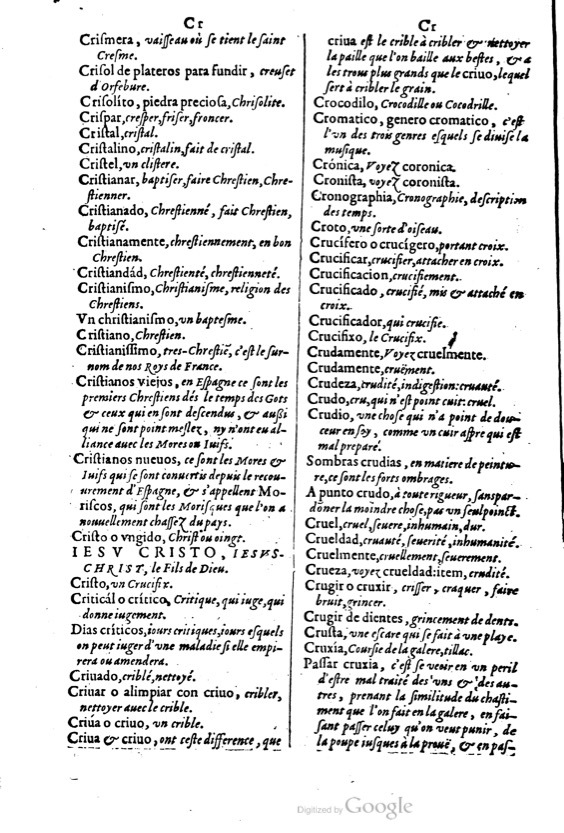 Cr
Criſmera, vaiſſeau où ſe tient le ſaint
Creſme.
Criſol de plateros para fundir, creuſet
d'Orfebure.
Criſolito, piedra precioſa, Chriſolite.
Criſpar, creſper, friſer, froncer.
Criſtal, criſtal.
Criſtalino, criſtalin, fait de criſtal.
Criſtel, vn cliſtere.
Criſtianar, baptiſer, faire Chreſtien, Chre-
ſtienner.
Criſtianado, Chreſtienné, fait Chreſtien,
baptiſé.
Criſtianamente, chreſtiennement, en bon
Chreſtien.
Criſtiandád, Chreſtienté, chreſtienneté.
Criſtianiſmo, Chriſtianiſme, religion des
Chreſtiens.
Vn chriſtianiſmo, vn bapteſme.
Criſtiano, Chreſtien.
Criſtianiſſimo, tres-Chreſtiē, c'eſt le ſur-
nom de nos Roys de France.
Criſtianos viejos, en Eſpagne ce ſont les
premiers Chreſtiens dés le temps des Gots
& ceux qui en ſont deſcendus, & auſſi
qui ne ſont point meſlez, ny n'ont eu al-
liance auec les Mores ou Iuifs.
Criſtianos nueuos, ce ſont les Mores &
Iuifs qui ſe ſont conuertis depuis le recou-
urement d'Eſpagne, & s'appellent Mo-
riſcos, qui ſont les Moriſques que l'on a
nouuellement chaſſez du pays.
Criſto o vngido, Chriſt ou oingt.
IESV CRISTO, IESVS-
CHRIST, le Fils de Dieu.
Criſto, vn Crucifix.
Criticál o crítico, Critique, qui iuge, qui
donne iugement.
Dias críticos, iours critiques, iours eſquels
on peut iuger d'vne maladie ſi elle empi-
rera ou amendera.
Criuado, criblé, nettoyé.
Criuar o alimpiar con criuo, cribler,
nettoyer auec le crible.
Criúa o criuo, vn crible.
Criua & criuo, ont ceſte difference, que
Cr
criua eſt le crible à cribler & nettoyer
la paille que l'on baille aux beſtes, & a
les trous plus grands que le criuo, lequel
ſert à cribler le grain.
Crocodilo, Crocodille ou Cocodrille.
Cromatico, genero cromatico, c'eſt
l'vn des trois genres eſquels ſe diuiſe la
muſique.
Crónica, Voyez coronica.
Croniſta, voyez coroniſta.
Cronographia, Cronographie, deſcription
des temps.
Croto, vne ſorte d'oiſeau.
Crucífero o crucígero, portant croix.
Crucificar, crucifier, attacher en croix.
Crucificacion, crucifiement.
Crucificado, crucifié, mis & attaché en
croix.
Crucificador, qui crucifie.
Crucifixo, le Crucifix.
Crudamente, Voyez cruelmente.
Crudamente, cruëment.
Crudeza, crudité, indigeſtion: cruauté.
Crudo, cru, qui n'eſt point cuit: cruel.
Crudio, vne choſe qui n'a point de dou-
ceur en ſoy, comme vn cuir aſpre qui eſt
mal preparé.
Sombras crudias, en matiere de peintu-
re, ce ſont les forts ombrages.
A punto crudo, à toute rigueur, ſans par-
dōner la moindre choſe, pas vn ſeul poinct.
Cruel, cruel, ſeuere, inhumain, dur.
Crueldad, cruauté, ſeuerité, inhumanité.
Cruelmente, cruellement, ſeuerement.
Crueza, voyez crueldad: item, crudité.
Crugir o cruxir, criſſer, craquer, faire
bruit, grincer.
Crugir de dientes, grincement de dents.
Cruſta, vne eſcare qui ſe fait à vne playe.
Cruxia, Courſie de la galere, tillac.
Paſſar cruxia, c'eſt ſe veoir en vn peril
d'eſtre mal traité des vns & des au-
tres, prenant la ſimilitude du chaſti-
ment que l'on fait en la galere, en fai-
ſant paſſer celuy qu'on veut punir, de
la poupe iuſques à la prouë, & en paſ-
Digitized by Google